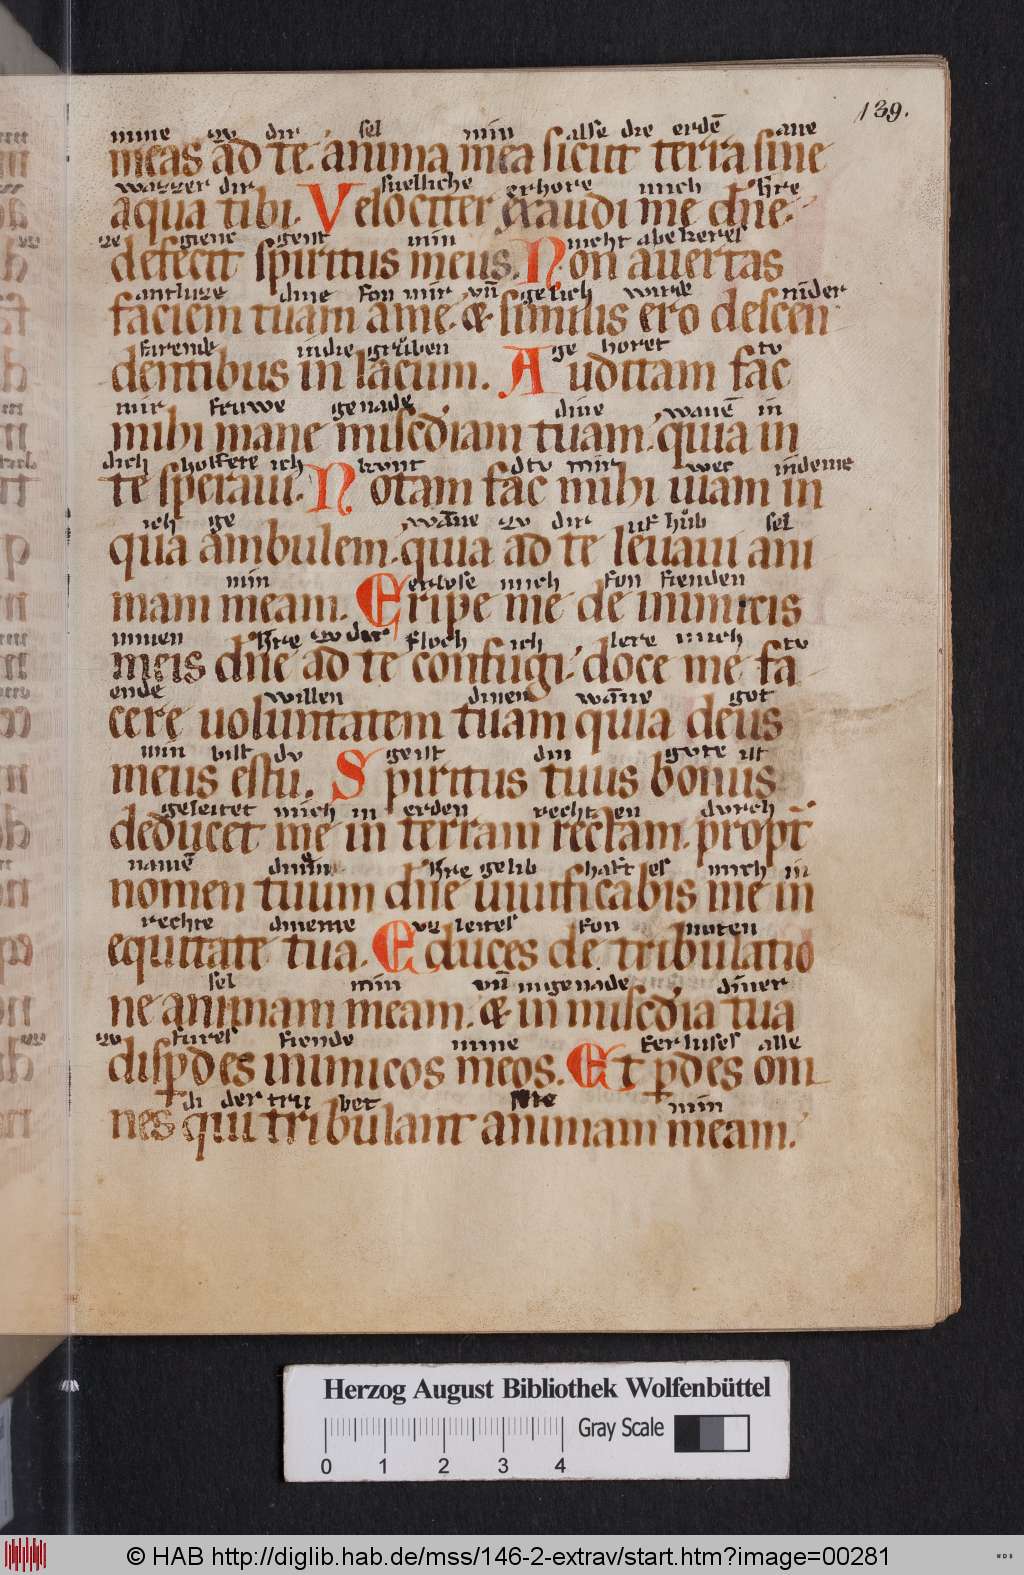 139.
mine zv dir sel min alse die erdē ane
meas ad te. anima mea sicut terra sine
wazzer dir snelliche erhore mich h͛re
aqua tibi. Velociter exaudi me dn̄e.
ze gene geist min nicht abe keres
defecit spiritus meus. Non auertas
antluze dine fon mir vn̄ gelich wirde nider
faciem tuam a me. & similis ero descen
farende in die grůben ge horet tv
dentibus in lacum. Auditam fac
mir fruwe genade dine wanē in
mihi mane misc̄diam tuam. quia in
dich hoffete ich kunt dtv mir wec indeme
te speraui. Notam fac mihi uiam in
ich ge wāne zv dir uf hůb sel
qua ambulem. quia ad te leuaui ani
min erlose mich fon fienden
mam meam. Eripe me de inimicis
minen h͛re zv dir floch ich lere mich tv
meis dn̄e ad te confugi. doce me fa
ende willen dinen wāne got
cere uoluntatem tuam quia deus
min bist dv geist din gute ist
meus es tu. Spiritus tuus bonus
geleitet mich in erden rechten durch
deducet me in terram rectam. propt̄
namē dinen h͛re gelib haft es mich in
nomen tuum dn̄e uiuificabis me in
rechte dineme vz leites fon noten
equitate tua. Educes de tribulatio
sel min vn̄ in genade diner
ne animam meam. & in misc̄dia tua
zv fures fiende mine ferluses alle
disp̱des inimicos meos. Et p̱des om
di der trubet min
nes qui tribulant animam meam.
Herzog August Bibliothek Wolfenbüttel
Gray Scale
0 1 2 3 4
© HAB http://diglib.hab.de/mss/146-2-extrav/start.htm?image=00281